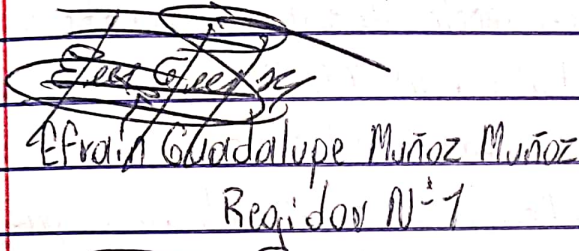 Efrain Guadalupe Muñoz Muñoz
Regidor Nº1